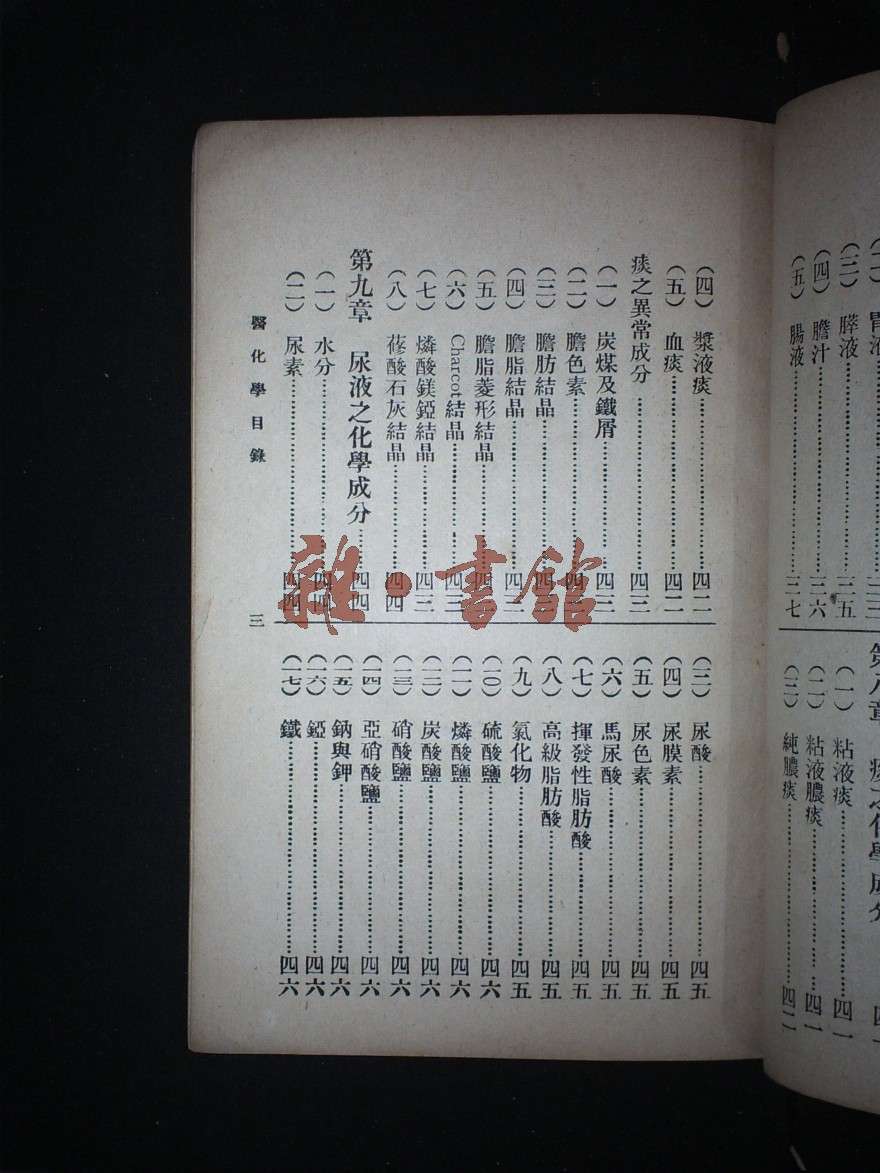 胃液
（三）膵液……三五
（四）膽汁……三六
（五）腸液……三七
第八章 痰之化學成分
（一）粘液痰……四一
（二）粘液膿痰……四一
（三）純膿痰……四二
（四）漿液痰……四二
（五）血痰……四二
痰之異常成分……四三
（一）炭煤及鐵屑……四三
（二）膽色素……四三
（三）脂肪結晶……四三
（四）膽脂結晶……四三
（五）膽脂菱形結晶……四三
（六）Charcot結晶……四三
（七）燐酸鎂錏結晶……四三
（八）蓚酸石灰結晶……四四
第九章 尿液之化學成分……四四
（一）水分……四四
（二）尿素……四四
（三）尿酸……四五
（四）尿膜素……四五
（五）尿色素……四五
（六）馬尿酸……四五
（七）揮發性脂肪酸……四五
（八）高級脂肪酸……四五
（九）氯化物……四五
（一〇）硫酸鹽……四六
（一一）燐酸鹽……四六
（一二）炭酸鹽……四六
（一三）硝酸鹽……四六
（一四）亞硝酸鹽……四六
（一五）鈉與鉀……四六
（一六）錏……四六
（一七）鐵……四六
醫化學目錄
三
雜·書館